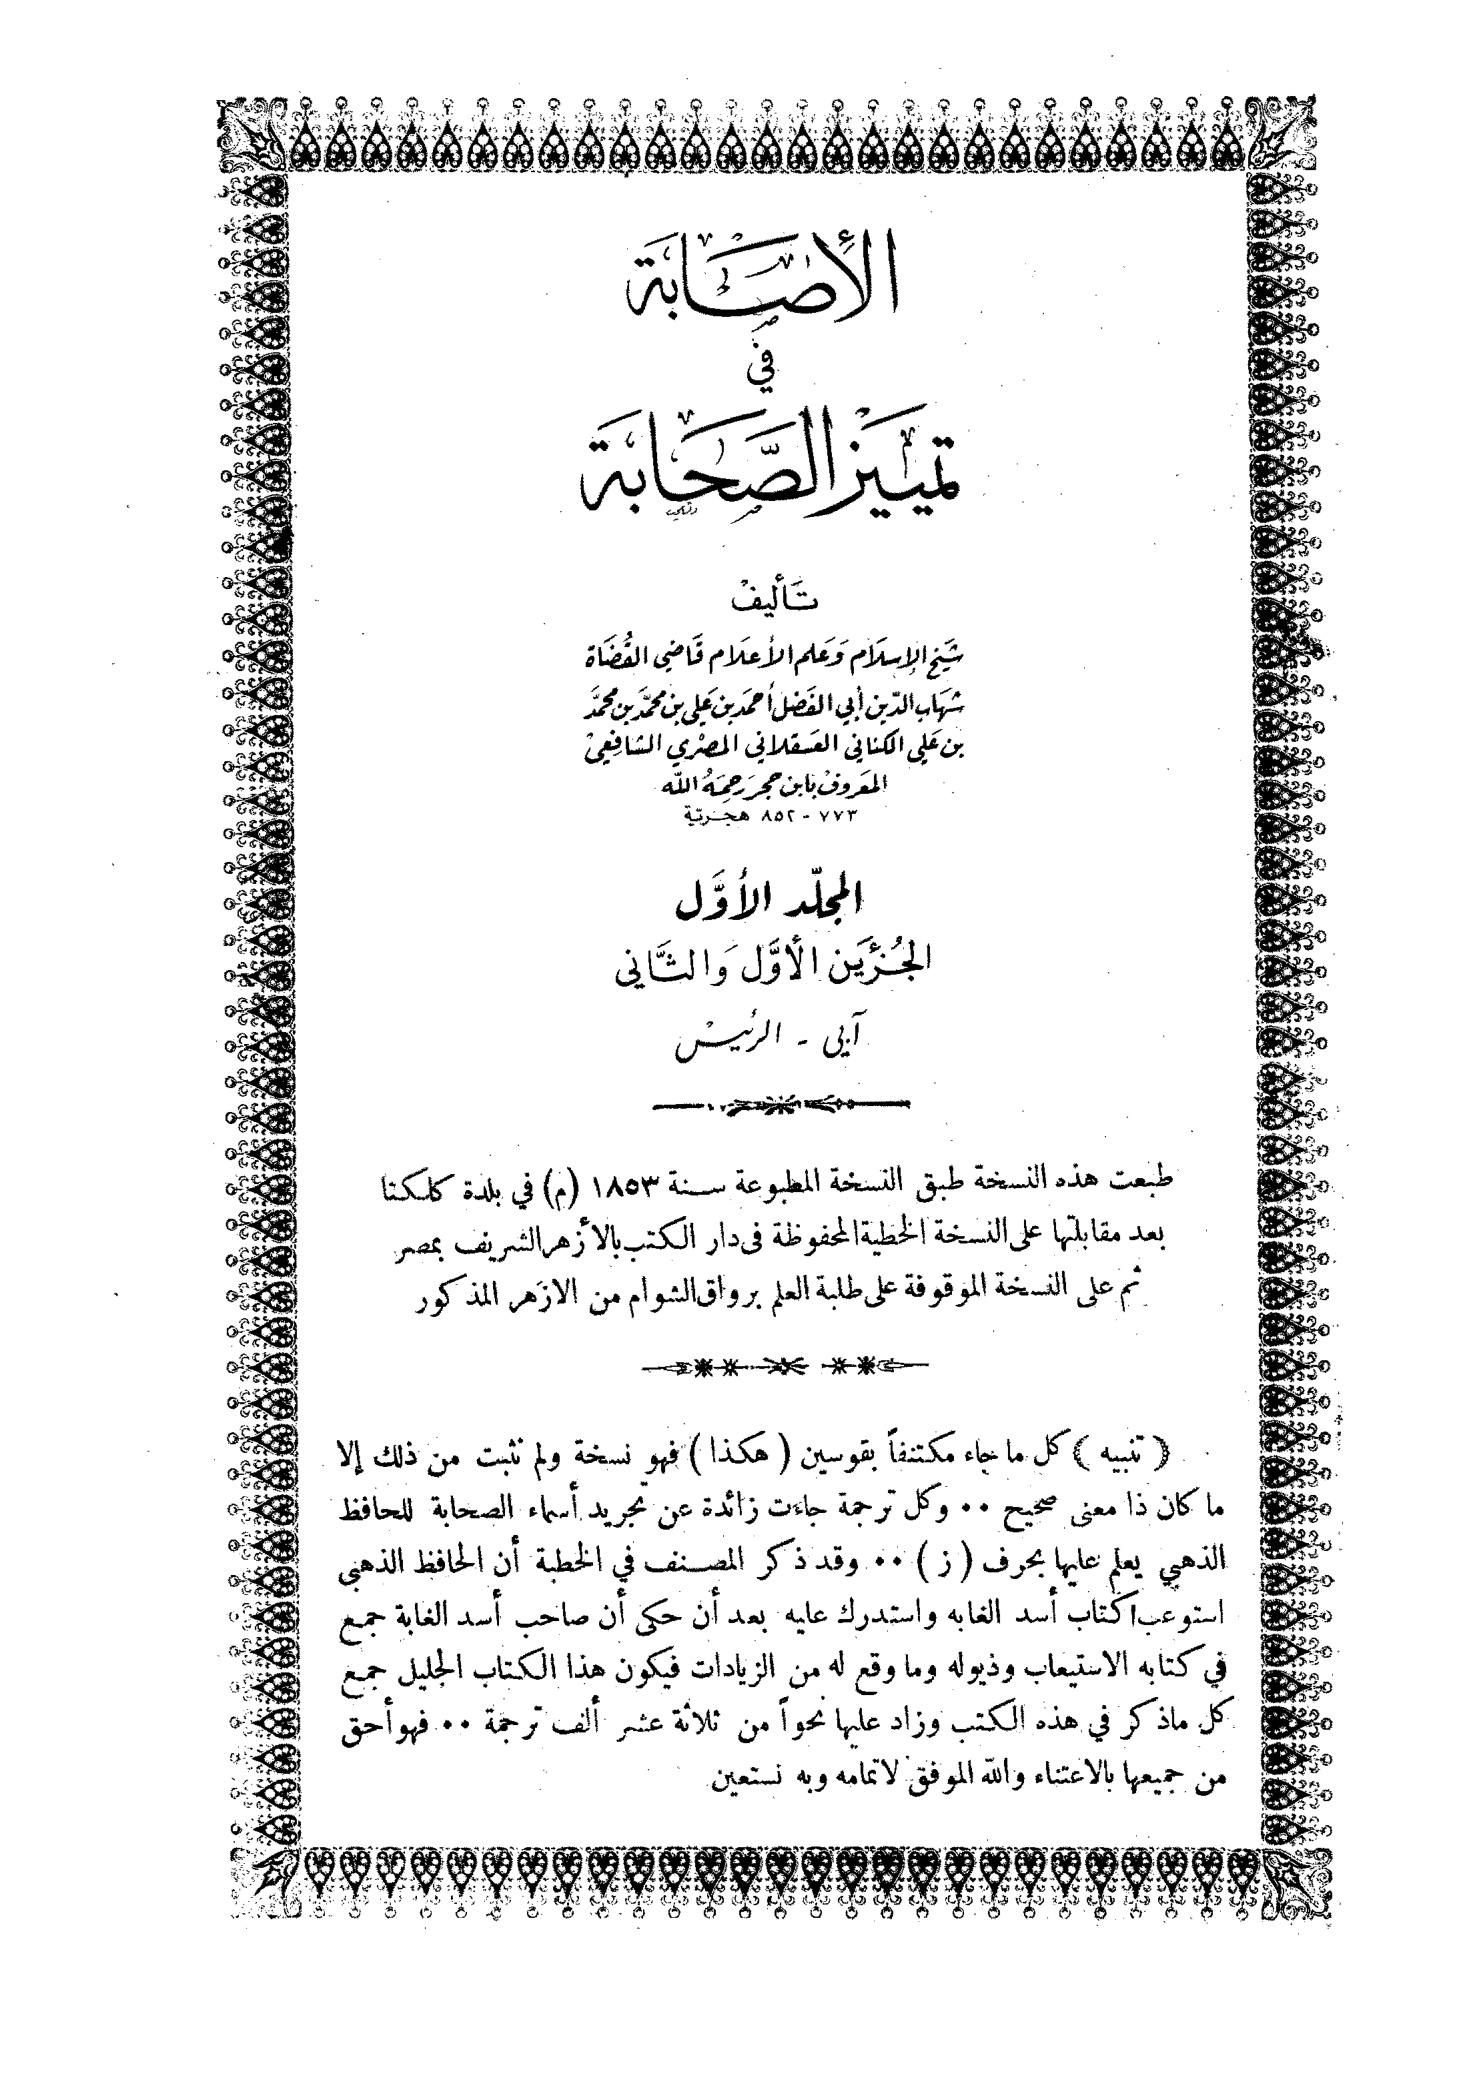 الإصَابَة
في
تمييز الصَّحَابَة
تَأليفْ
شَيَخ الإسلَام وَعَلم الأعلَام قَاضِي القُضَاة
شهَاب الدّين أبي الفَضل أحمَد بن عَلي بن محمَّد بن محمَّد
بن عَلي الكناني العَسقلاني المصْري الشافِعيْ
المعَروفْ بابن حجر رَحِمَهُ اللّه
٧٧٣ - ٨٥٢ هجـريّة
المجلّد الأوَّل
الجُزئَين الأوَّل وَالثَّاني
آبي - الرئيسْ
طبعت هذه النسخة طبق النسخة المطبوعة سنة ١٨٥٣ (م) في بلدة كلكتا
بعد مقابلتها على النسخة الخطية المحفوظة فى دار الكتب بالأزهر الشريف بمصر
ثم على النسخة الموقوفة على طلبة العلم برواق الشوام من الازهر المذكور
( تنبيه ) كل ما جاء مكتنفاً بقوسين ( هكذا ) فهو نسخة ولم نثبت من ذلك إلا
ما كان ذا معنى صحيح ٠٠ وكل ترجمة جاءت زائدة عن تجريد أسماء الصحابة للحافظ
الذهبي يعلم عليها بحرف ( ز ) ٠٠ وقد ذكر المصنف في الخطبة أن الحافظ الذهبي
استوعب كتاب أسد الغابه واستدرك عليه بعد أن حكى أن صاحب أسد الغابة جمع
في كتابه الاستيعاب وذيوله وما وقع له من الزيادات فيكون هذا الكتاب الجليل جمع
كل ماذكر في هذه الكتب وزاد عليها نحواً من ثلاثة عشر ألف ترجمة ٠٠ فهو أحق
من جميعها بالاعتناء واللّه الموفق لاتمامه وبه نستعين